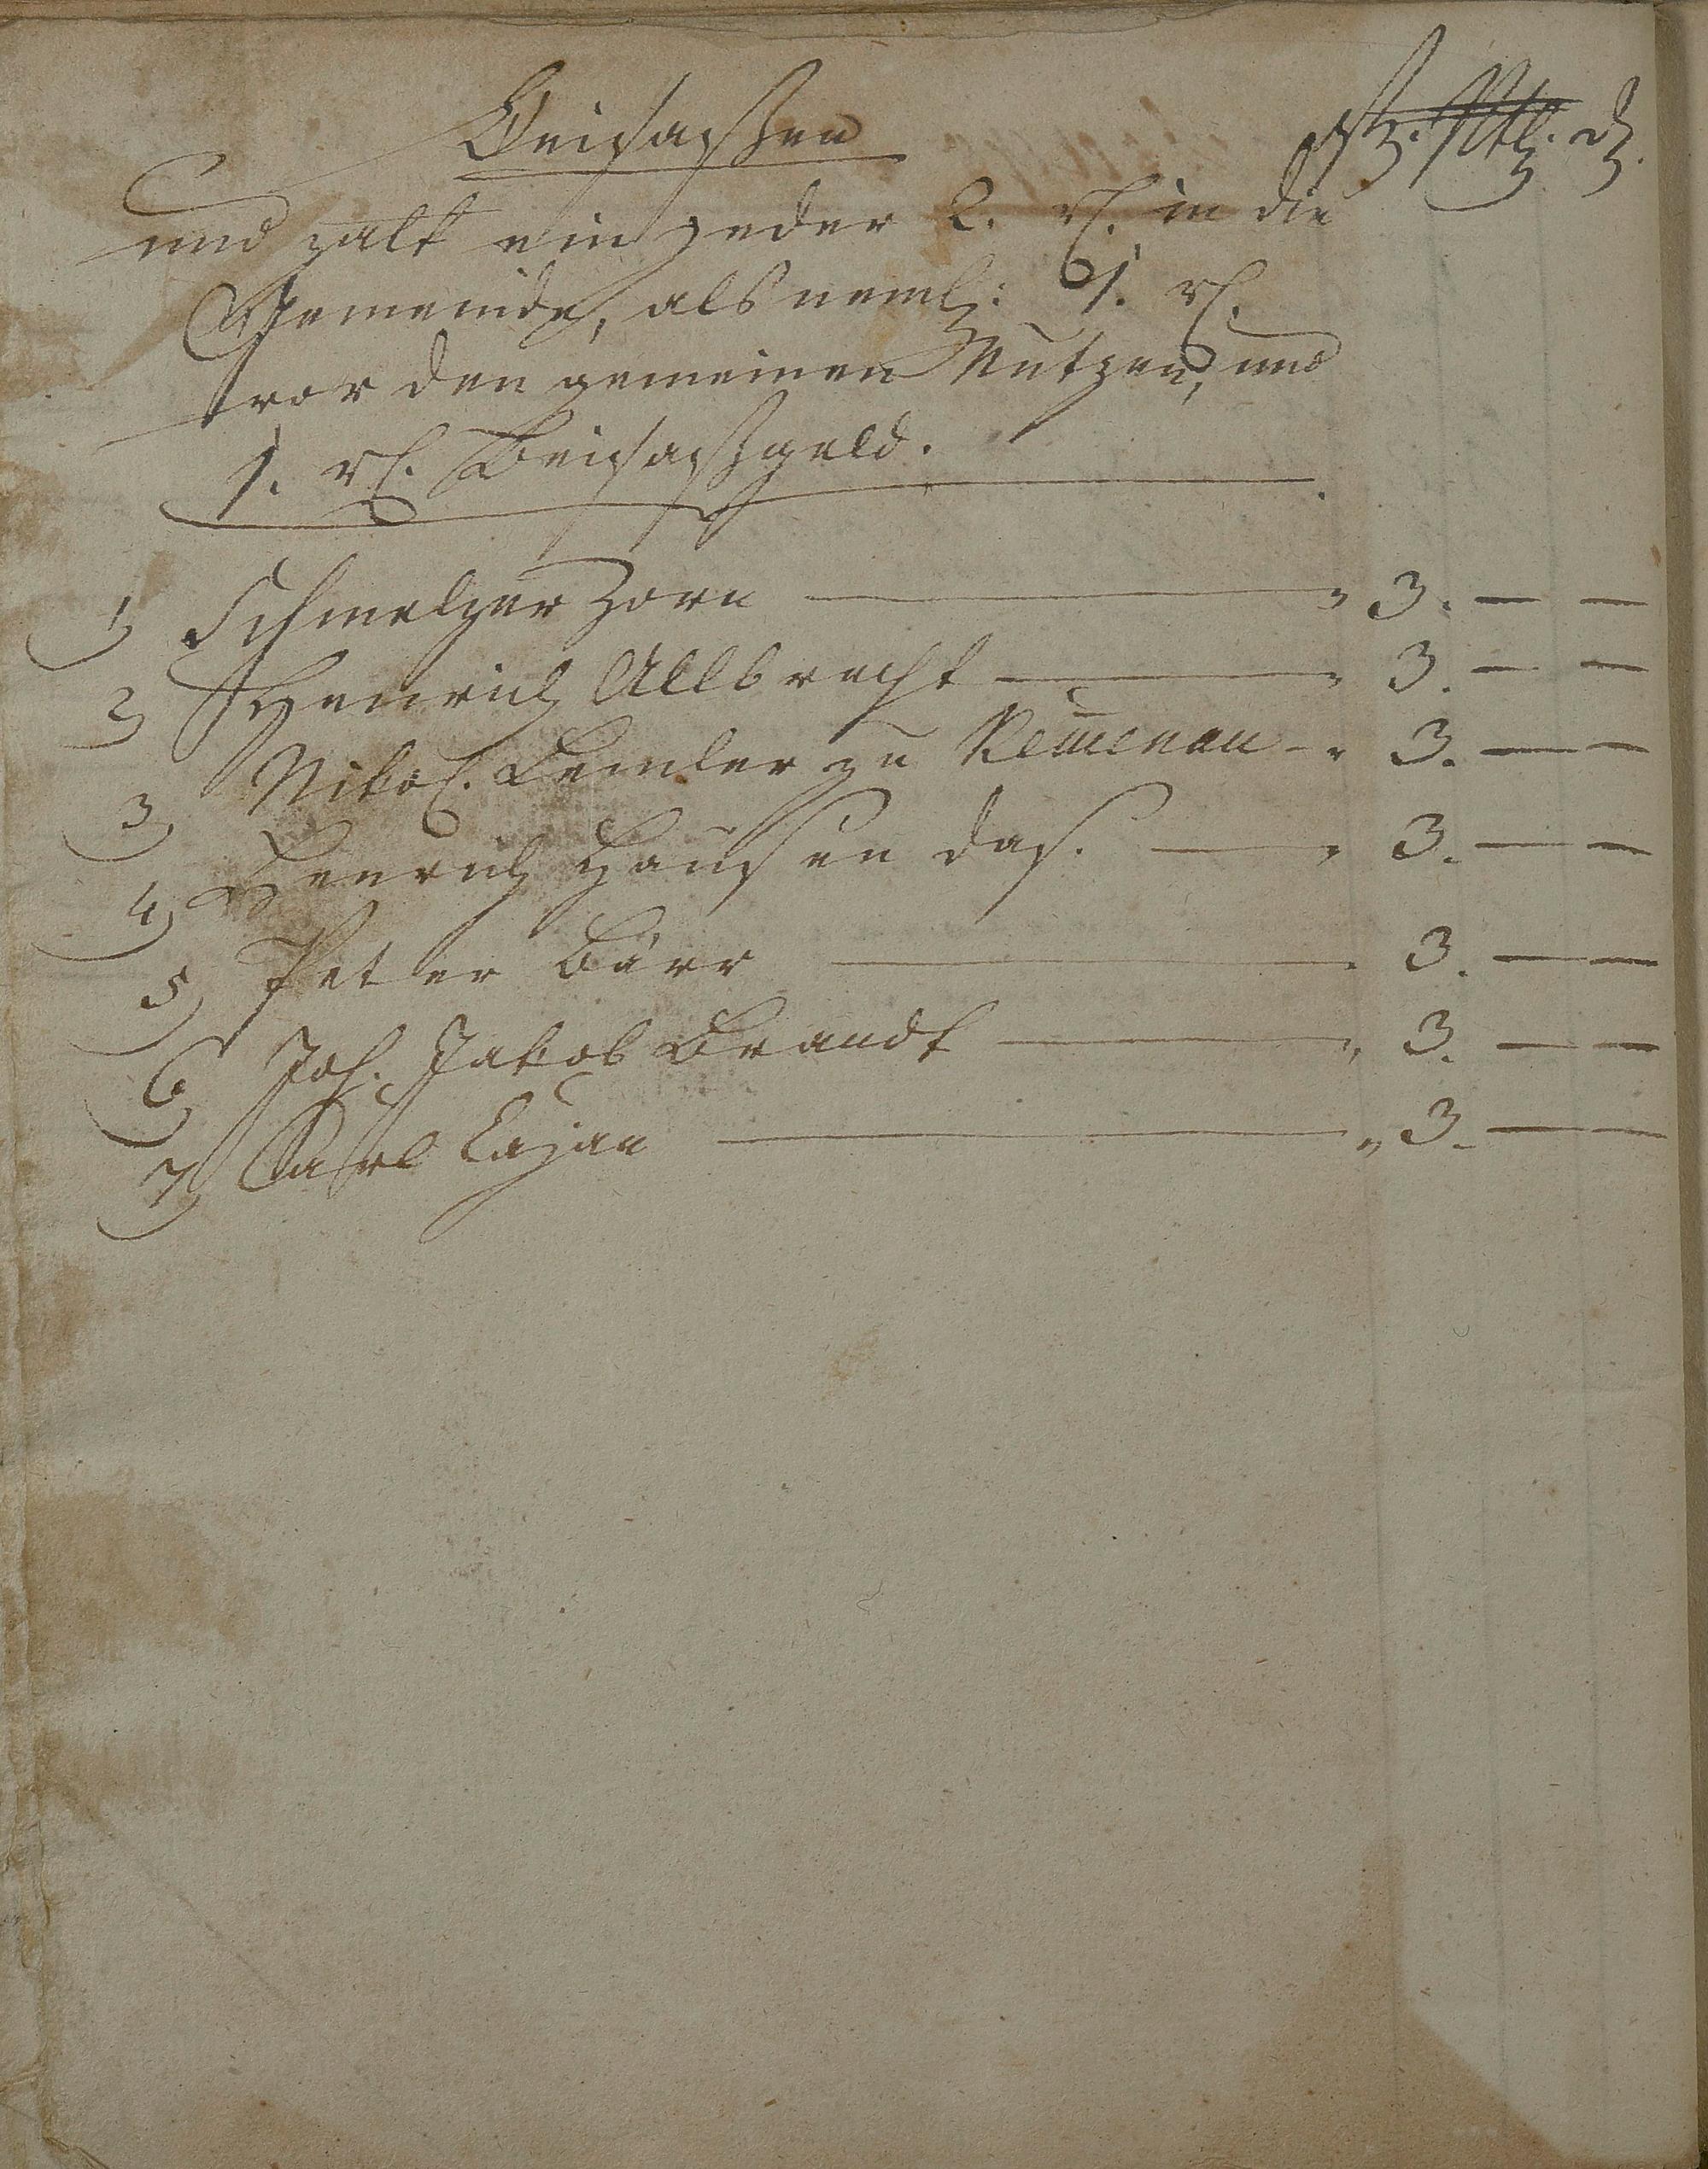 Beisaßen
und zalt ein jeder 2. rl. in die
Gemeinde, als neml: 1. rl.
vor den gemeinen Nutzen, und
1. rl. Beisaßgeld.
1) Schmelzer Zorn — " 3. — —
2) Henrich Allbrecht — " 3. — —
3) Nikol. Lemler zu Reuenau - " 3. — —
4) Henrich Hausen das. — " 3. — —
5) Peter Bärr — " 3. — —
6) Joh. Jakob Brandt — " 3. — —
7) Carl Cajan — " 3. — —